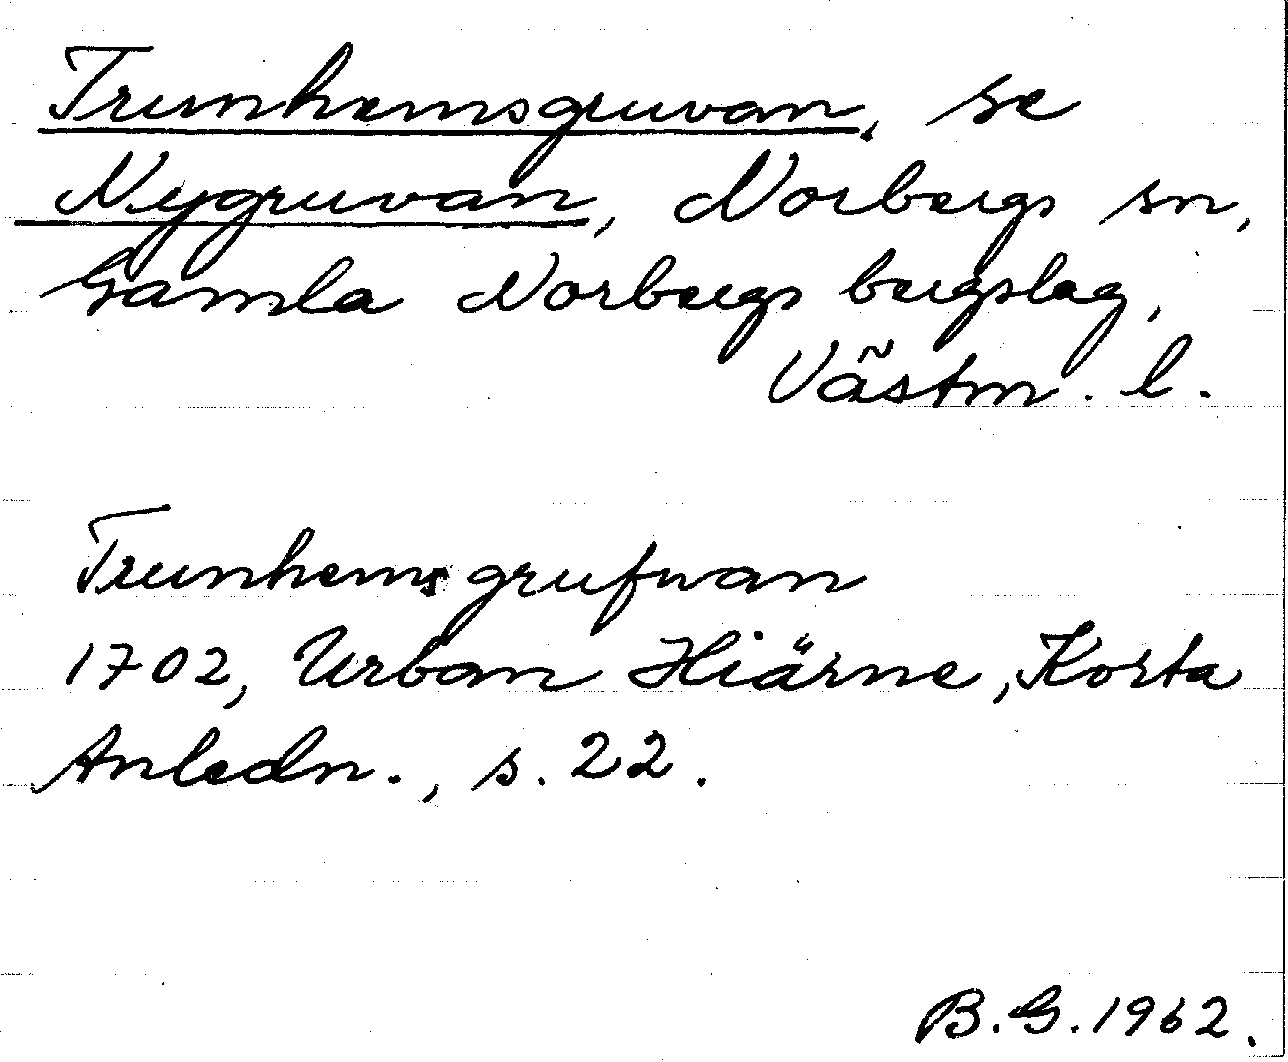 Trunhemsgruvan, se
Nygruvan, Norbergs sn,
Gamla Norbergs bergslag,
Västm. l.
Trunhems grufwan
1702, Urban Hiärne, Korta
Anledn., s. 22.
B.G. 1962.